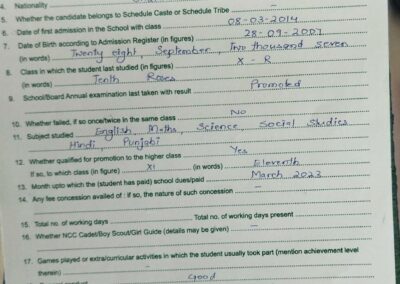 4. Nationality
5. Whether the candidate belongs to Schedule Caste or Schedule Tribe –
6. Date of first admission in the School with class 08-03-2014
7. Date of Birth according to Admission Register (in figures) 28-09-2007
(in words) Twenty eight, September, Two thousand seven
8. Class in which the student last studied (in figures) X - R
(in words) Tenth Roses
9. School/Board Annual examination last taken with result Promoted
10. Whether failed, if so once/twice in the same class No
11. Subject studied English, Maths, Science, Social Studies
Hindi, Punjabi
12. Whether qualified for promotion to the higher class Yes
If so, to which class (in figure) XI (in words) Eleventh
13. Month upto which the (student has paid) school dues/paid March 2023
14. Any fee concession availed of : if so, the nature of such concession –
15. Total no. of working days Total no. of working days present –
16. Whether NCC Cadet/Boy Scout/Girl Guide (details may be given) –
17. Games played or extra/curricular activities in which the student usually took part (mention achievement level
therein) –
Good